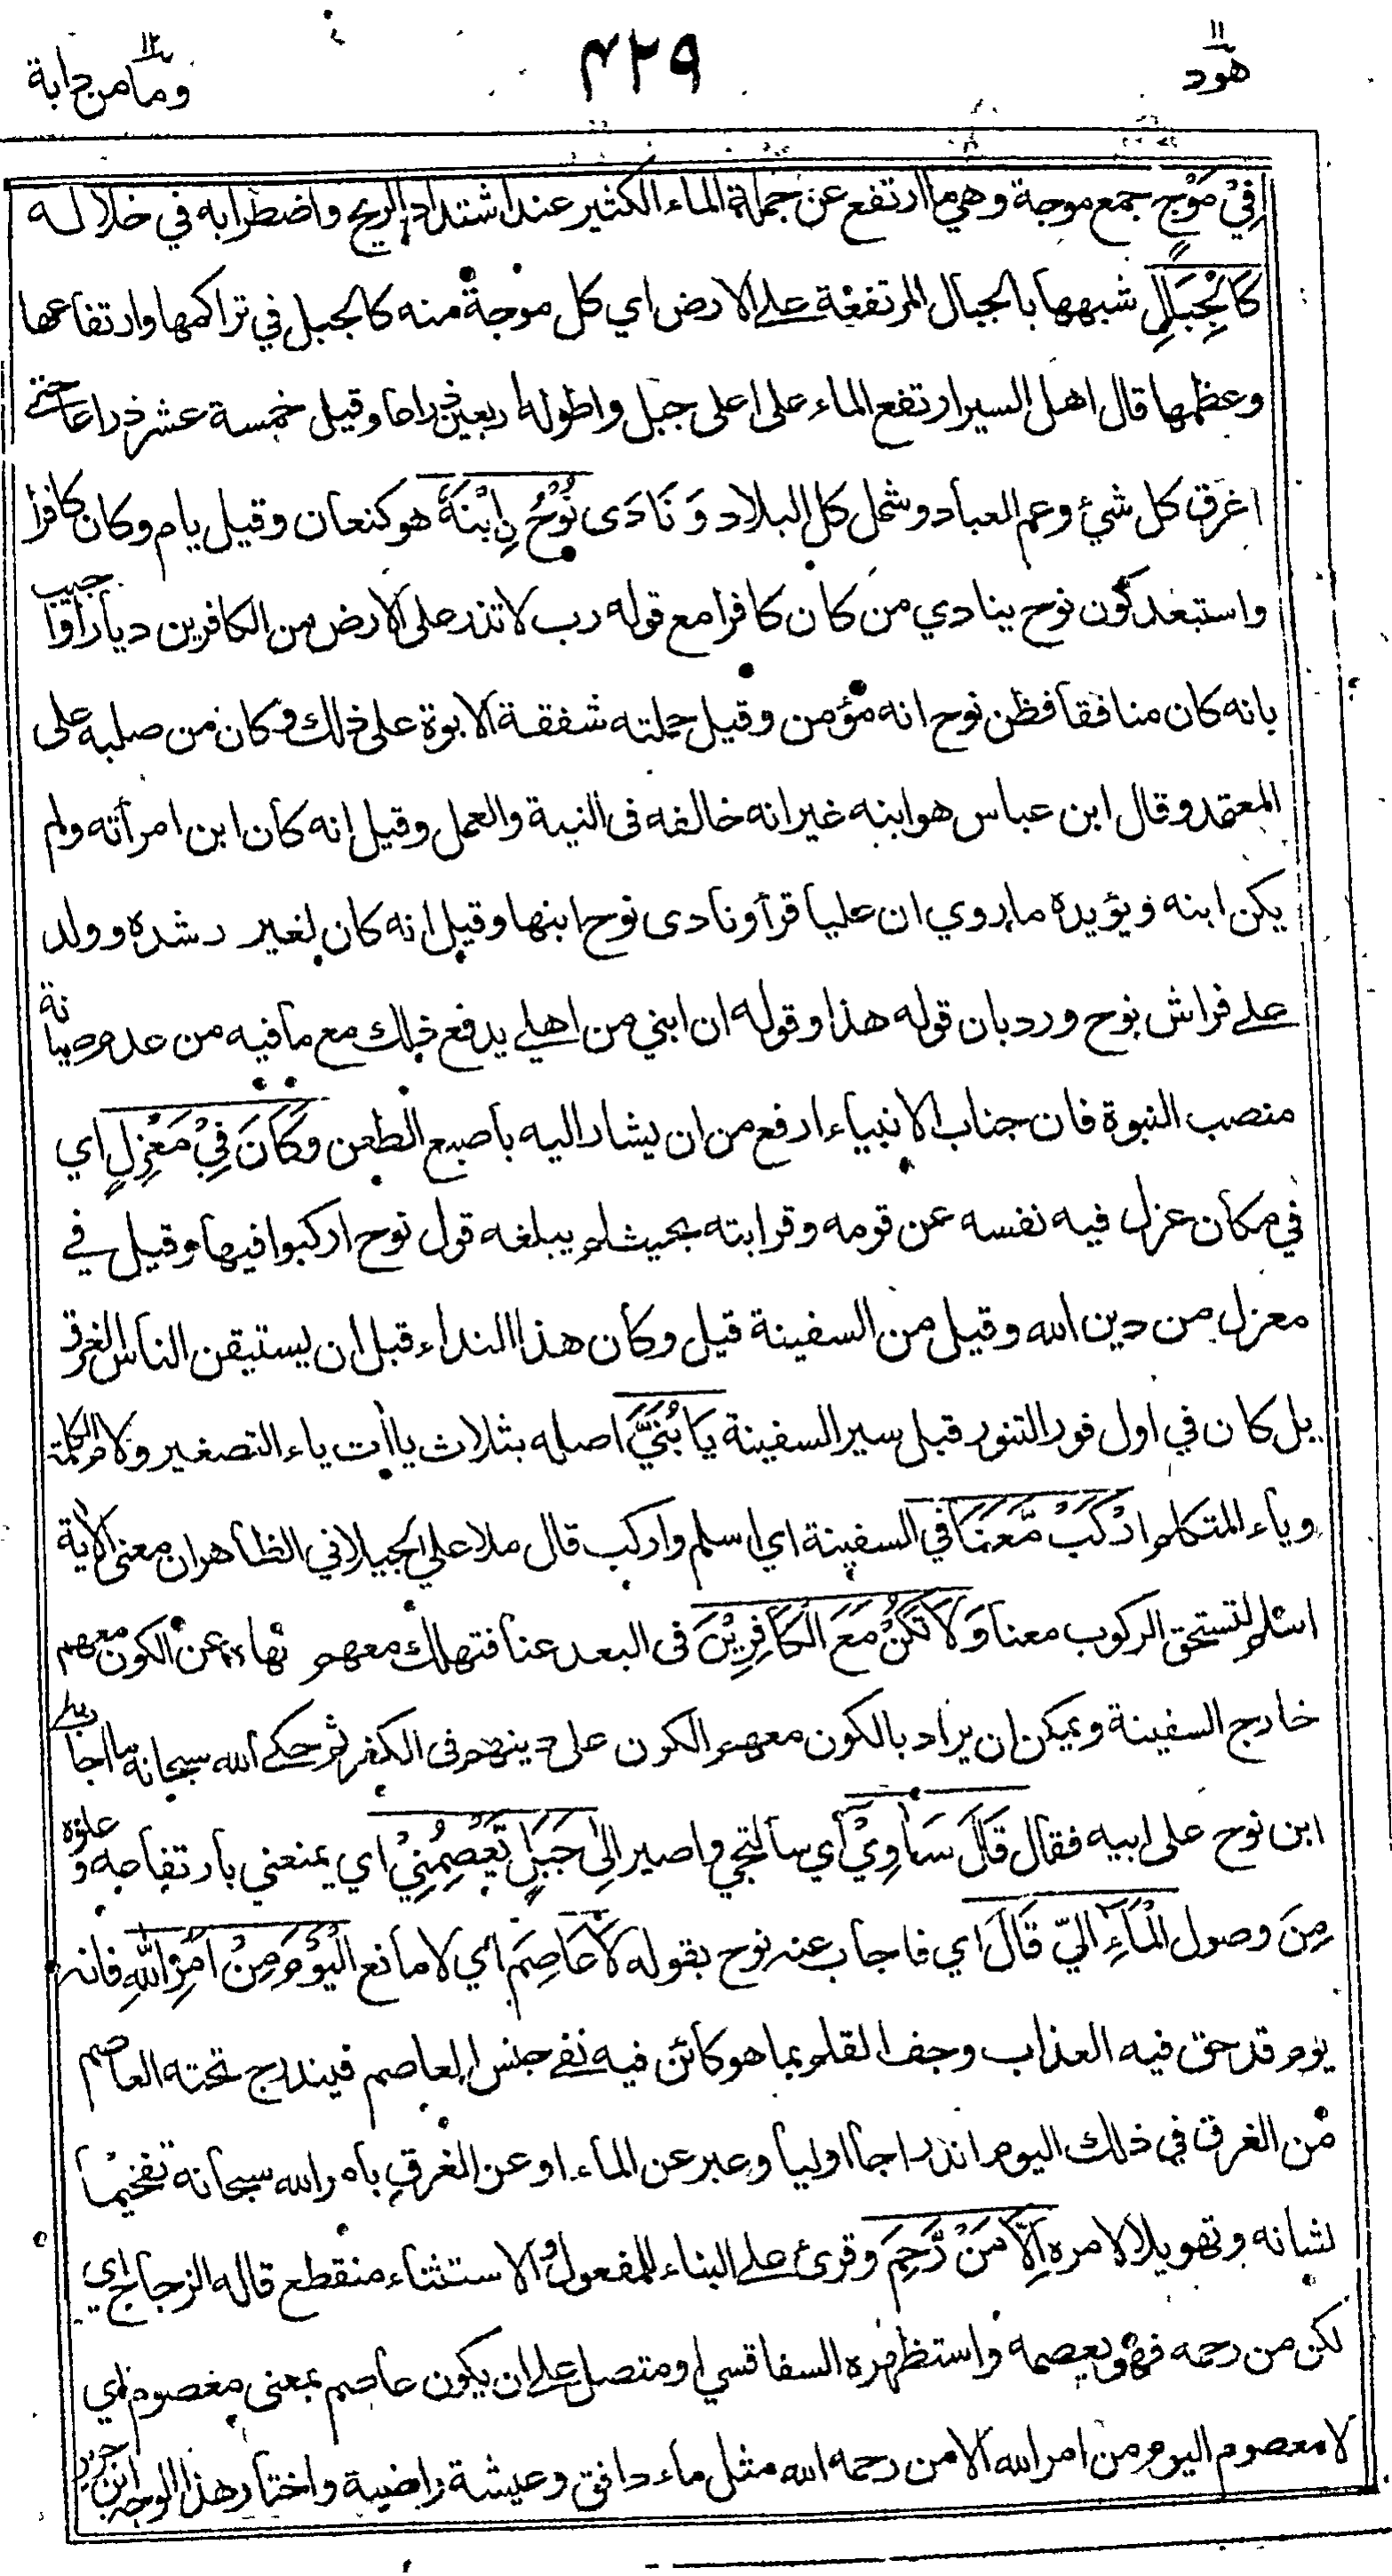 هود ١١
٤٢٩
وما من دابة ١٢
فِيْ مَوْجٍ جمع موجة وهي ما ارتفع عن جملة الماء الكثير عند اشتداد الريح واضطرابه في خلاله
كَالْجِبَالِ شبهها بالجبال المرتفعة على الارض اي كل موجة منه كالجبل في تراكمها وارتفاعها
وعظمها قال اهل السير ارتفع الماء على اعلى جبل واطوله اربعين ذراعا وقيل خمسة عشر ذراعا حتى
اغرق كل شئ وعم العباد وشمل كل البلاد وَ نَادَى نُوْحُ نِ ابْنَهُ هو كنعان وقيل يام وكان كافرا
واستبعد كون نوح ينادي من كان كافرا مع قوله رب لا تذر على الارض من الكافرين ديارا واجيب
بانه كان منافقا فظن نوح انه مؤمن وقيل حملته شفقة الابوة على ذلك وكان من صلبه على
المعتمد وقال ابن عباس هو ابنه غير انه خالفه فى النية والعمل وقيل انه كان ابن امرأته ولم
يكن ابنه ويؤيده ما روي ان عليا قرأ ونادى نوح ابنها وقيل انه كان لغير رشده وولد
على فراش نوح ورد بان قوله هذا وقوله ان ابني من اهلي يدفع ذلك مع ما فيه من عدم صيانة
منصب النبوة فان جناب الانبياء ارفع من ان يشار اليه باصبع الطعن وَكَانَ فِيْ مَعْزِلٍ اي
في مكان عزل فيه نفسه عن قومه وقرابته بحيث لم يبلغه قول نوح اركبوا فيها وقيل في
معزل من دين الله وقيل من السفينة قيل وكان هذا النداء قبل ان يستيقن الناس الغرق
بل كان في اول فور التنور قبل سير السفينة يَا بُنَيَّ اصله بثلاث ياأت ياء التصغير ولام الكلمة
وياء المتكلم ارْكَبْ مَّعَنَا في السفينة اي اسلم واركب قال ملا علي الجيلاني الظاهر ان معنى الآية
اسلم لتستحق الركوب معنا وَلَا تَكُنْ مَعَ الْكَافِرِيْنَ فى البعد عنا فتهلك معهم نهاه عن الكون معهم
خارج السفينة ويمكن ان يراد بالكون معهم الكون على دينهم فى الكفر ثم حكى الله سبحانه ما اجاب به
ابن نوح على ابيه فقال قَالَ سَاٰوِيْ اي سألتجي واصير اِلىٰ جَبَلٍ يَّعْصِمُنِيْ اي يمنعني بارتفاعه وعلوه
مِنَ وصول الْمَآءِ اليّ قَالَ اي فاجاب عنه نوح بقوله لَا عَاصِمَ اي لا مانع الْيَوْمَ مِنْ اَمْرِ اللهِ فانه
يوم قد حق فيه العذاب وجف القلم بما هو كائن فيه نفى جنس العاصم فيندرج تحته العاصم
من الغرق في ذلك اليوم اندراجا اوليا وعبر عن الماء او عن الغرق بامر الله سبحانه تفخيما
لشانه وتهويلا لامره اِلَّا مَنْ رَّحِمَ وقرئ على البناء للمفعول والاستثناء منقطع قاله الزجاج اي
لكن من رحمه فهو يعصمه واستظهره السفاقسي او متصل على ان يكون عاصم بمعنى معصوم اي
لا معصوم اليوم من امر الله الا من رحمه الله مثل ماء دافق وعيشة راضية واختار هذا الوجه ابن جرير